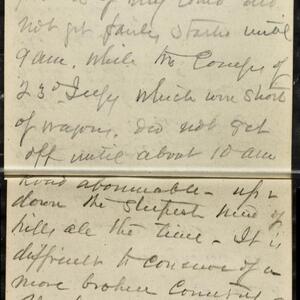 of my
not get fairly started until
9 am. while the Compy of
23d Infy which were short
of wagons, did not get
off until about 10 am
Road abominable - up &
down the steepest kind of
hills all the time - It is
difficult to conceive of a
more broken country